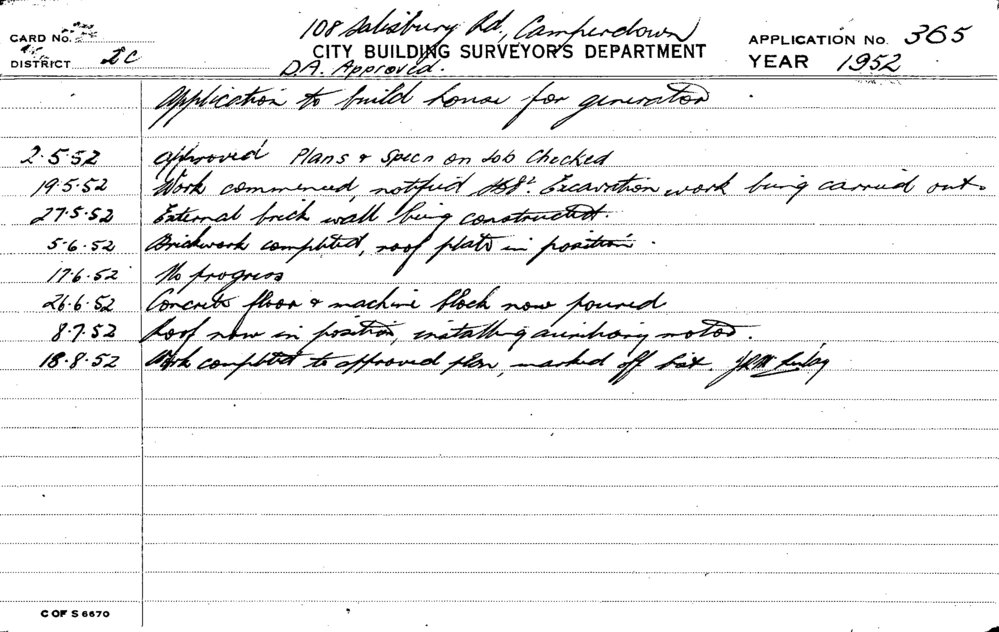 108 Salisbury Rd, Camperdown
CARD No.
CITY BUILDING SURVEYOR'S DEPARTMENT
APPLICATION No. 365
DISTRICT
D.A. Approved.
YEAR 1952
Application to build house for generator
2.5.52 Approved Plans & Specn on Job Checked
19.5.52 Work commenced, notified Excavation work being carried out.
27.5.52 External brick wall being constructed.
5.6.52 Brickwork completed, roof plate in position.
17.6.52 No progress
26.6.52 Concrete floor & machine block now poured
8.7.52 Roof now in position, installing auxiliary motor.
18.8.52 Work completed to approved plan, marked off list.
C OF S 6670